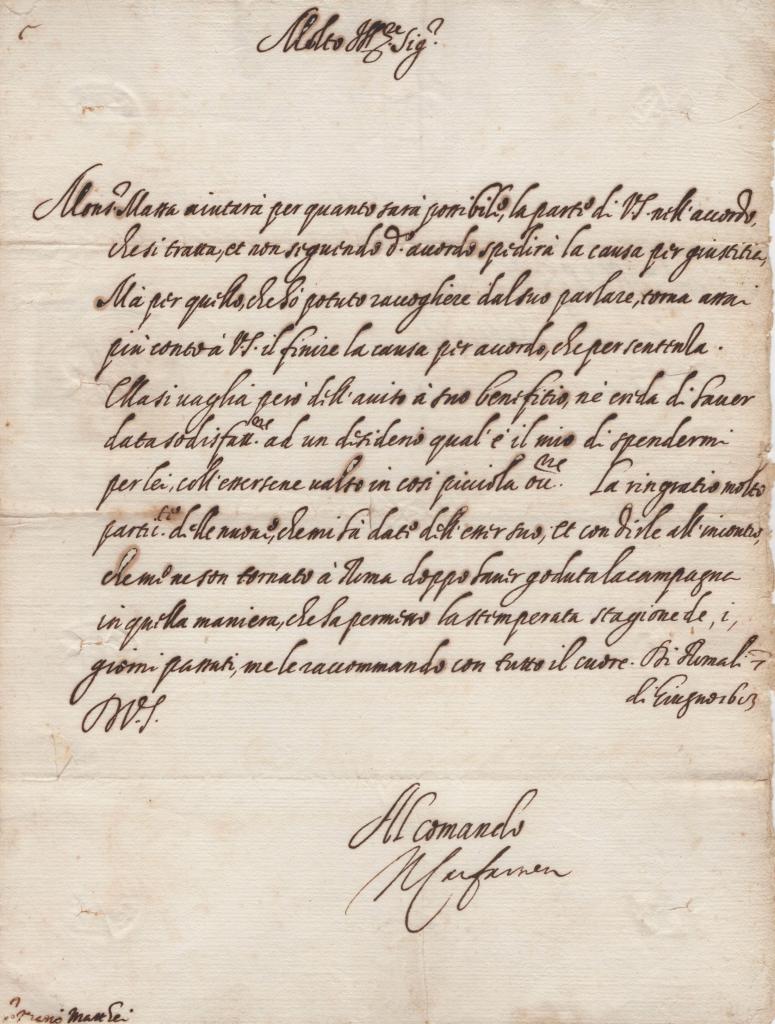 Molto Ill.re Sig.r
Mons.r Massa aiutarà per quanto sarà possibile, la parte di V.S. nell'accordo,
che si tratta, et non seguendo d.o acordo spedirà la causa per giustitia,
Mà per quello, che hò potuto raccogliere dal suo parlare, torna assai
più conto à V.S. il finire la causa per accordo, che per sentenza.
Ella si vaglia però dell'aviso à suo benefitio, nè creda di haver
data sodisfatt.ne ad un desiderio qual'è il mio di spendermi
per lei, coll'essersene valso in così picciola occ.ne La ringratio molto
partic.te delle nuove, che mi hà dato dell'esser suo, et con dirle all'incontro,
che me ne son tornato à Roma doppo haver goduta la campagna
in quella maniera, che ha permesso la stemperata stagione de, i,
giorni passati, me le raccommando con tutto il cuore. Di Roma li
di Giugno
D V.S.
Al comando
Matthei